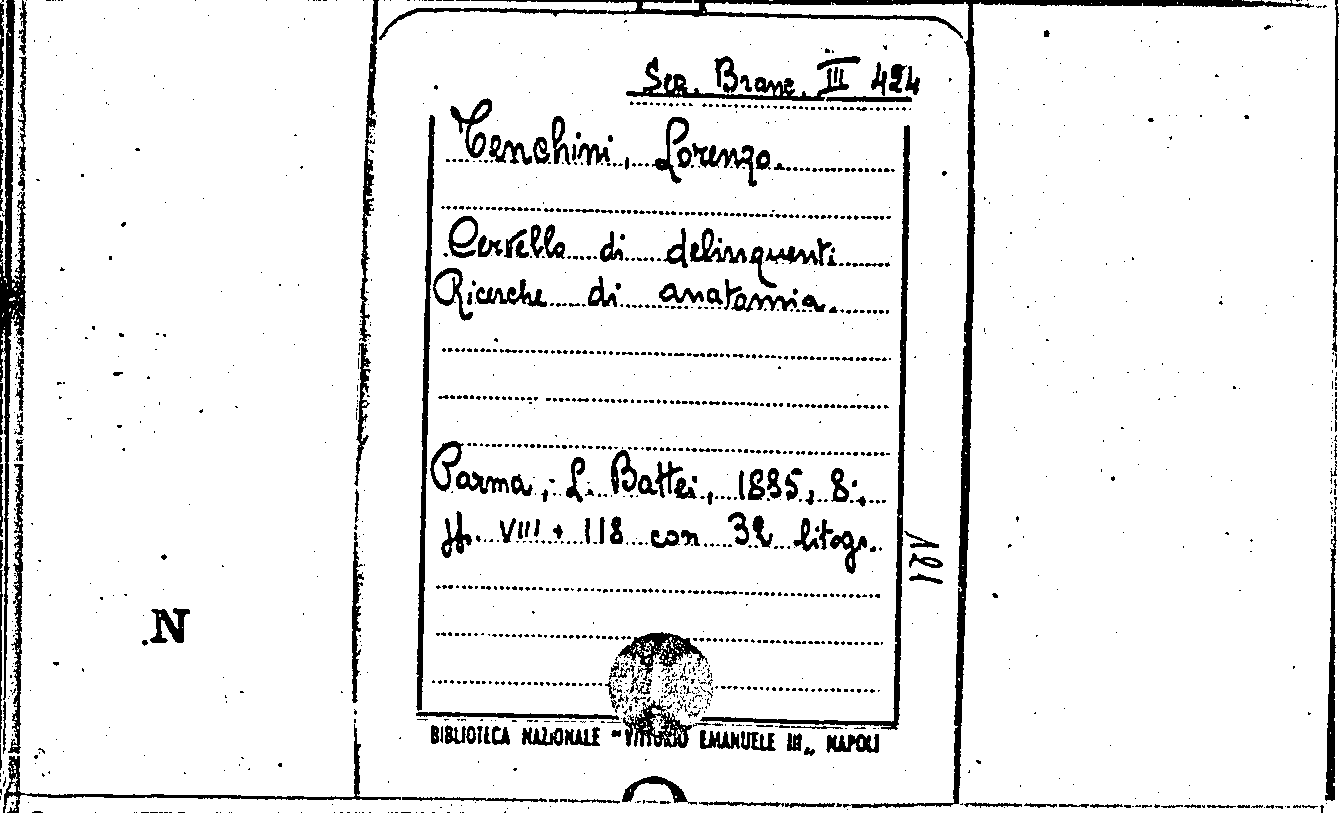 Sez. Branc. III 424
Tenchini, Lorenzo.
Cervello di delinquenti
Ricerche di anatomia.
Parma, L. Battei, 1885, 8°,
pp. VIII + 118 con 32 litogr.
N
BIBLIOTECA NAZIONALE "VITTORIO EMANUELE III„ NAPOLI